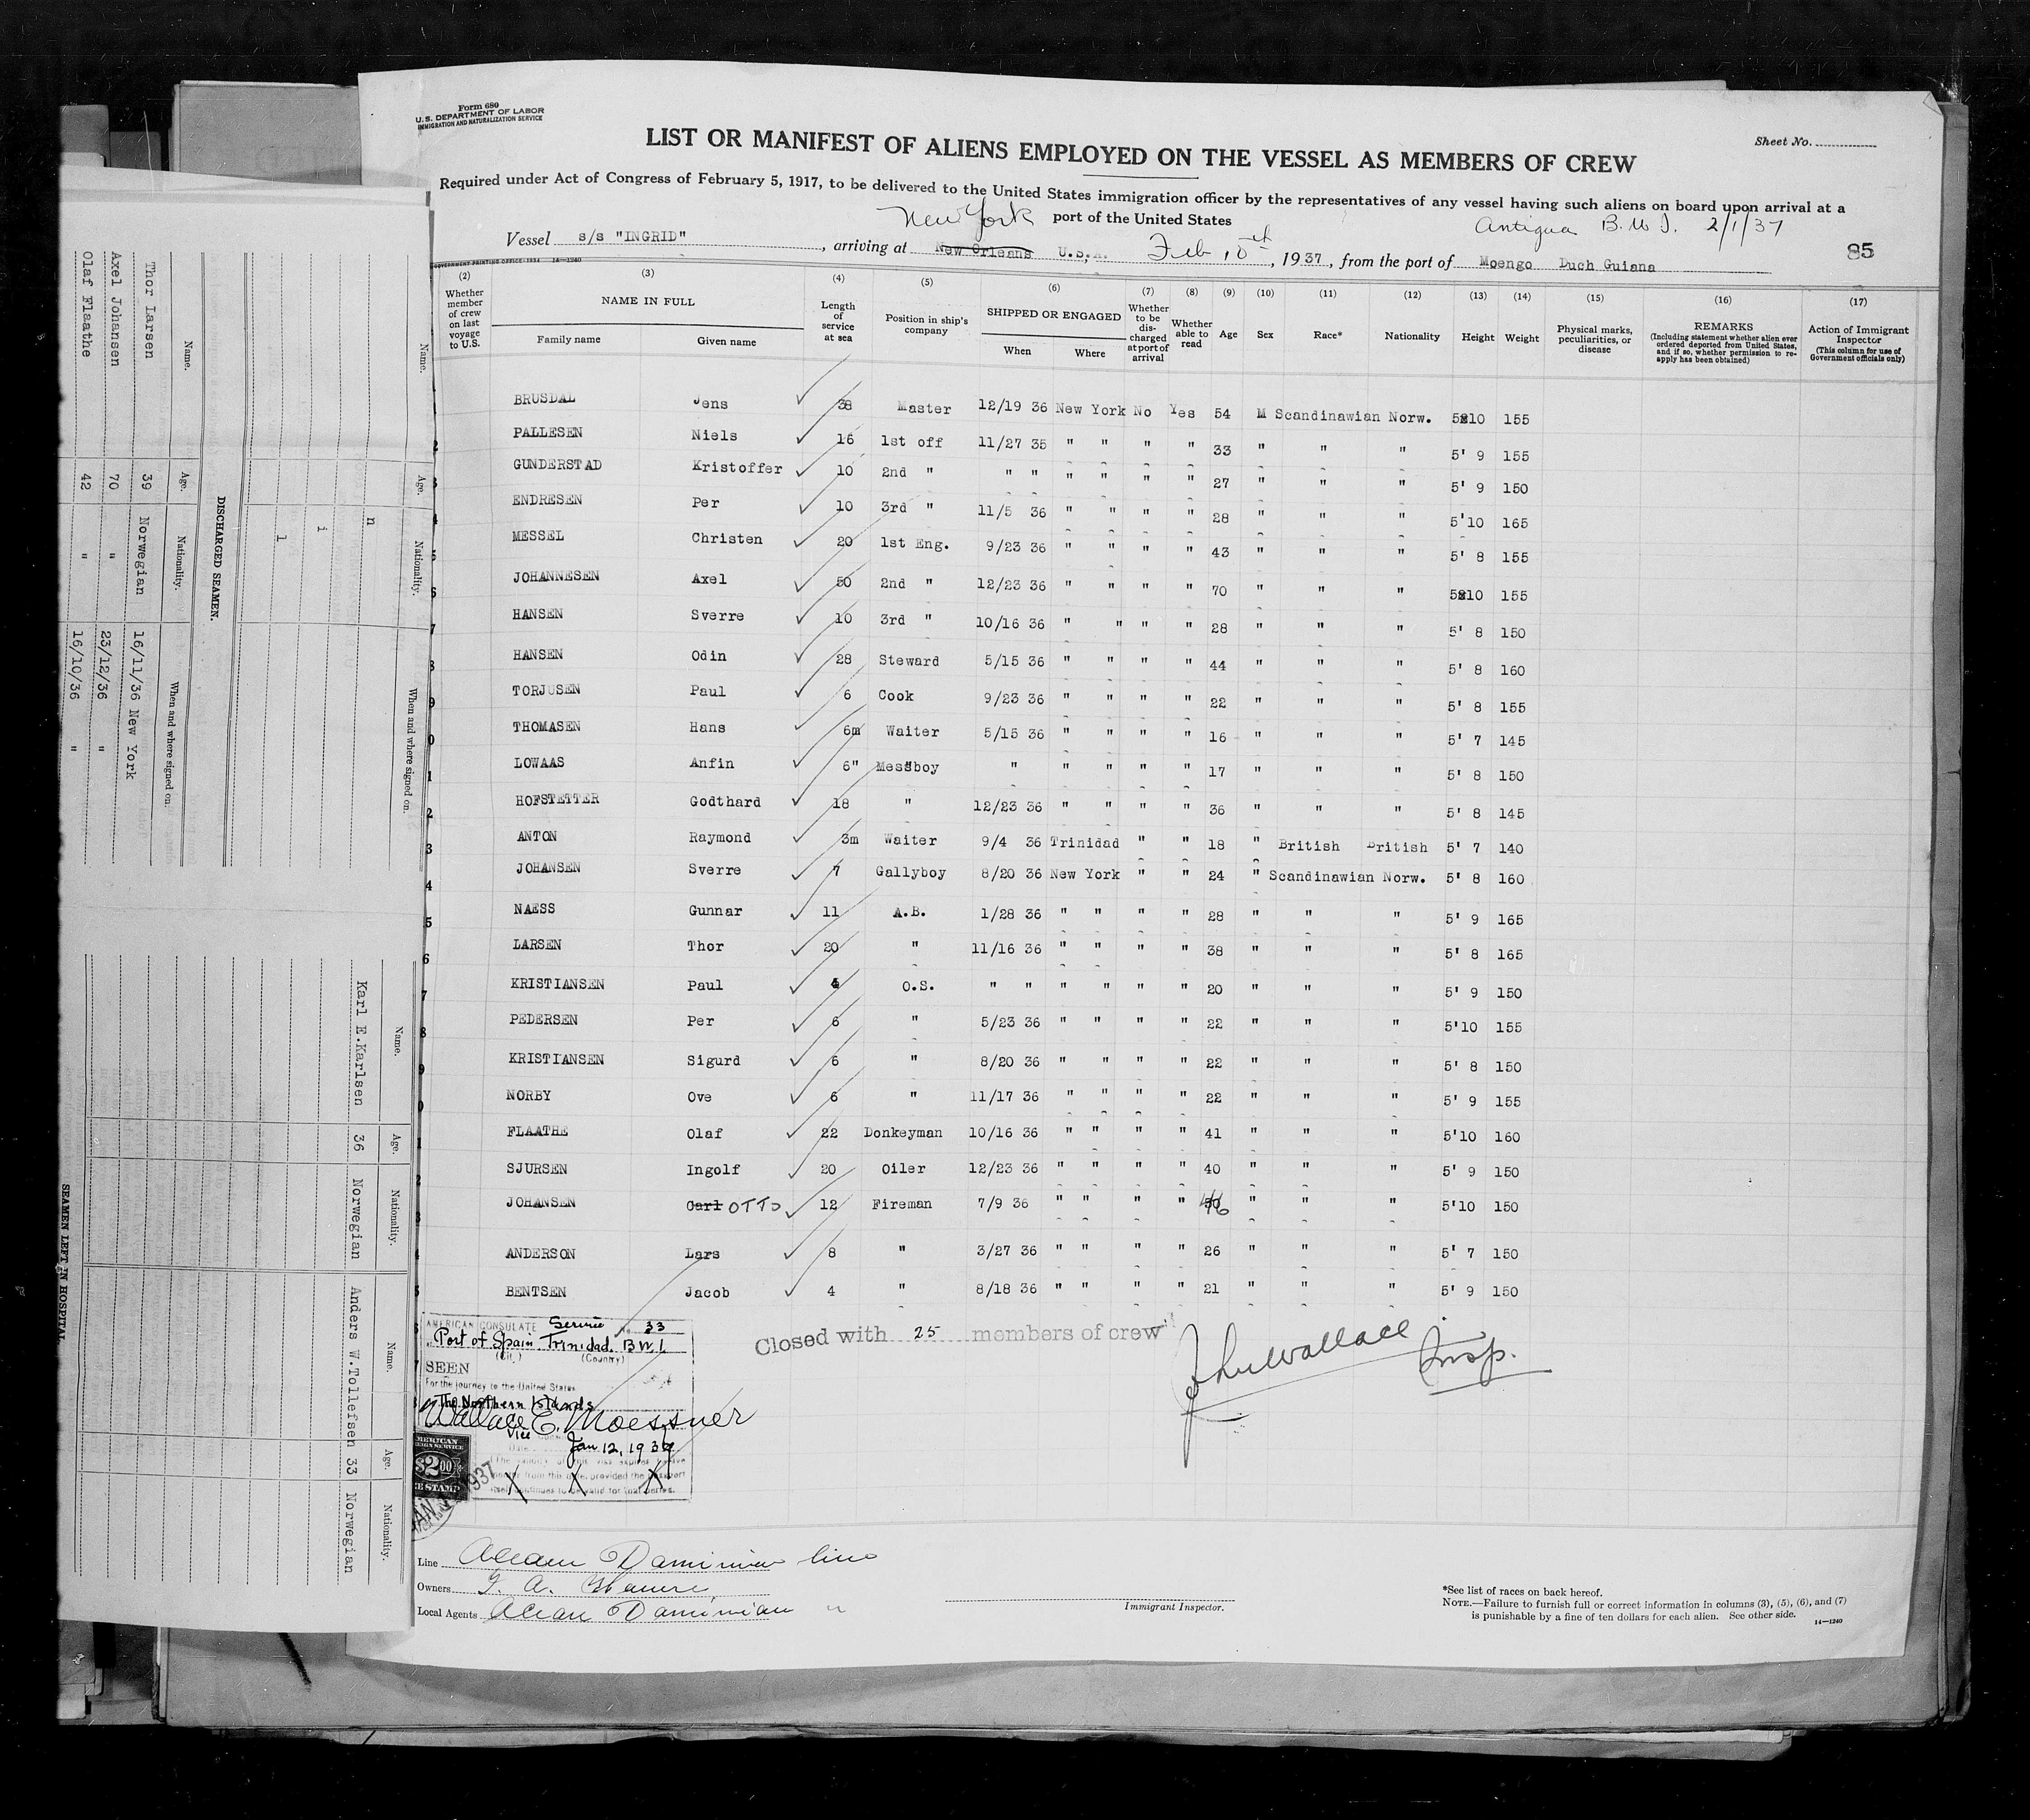 Form 680
U. S. DEPARTMENT OF LABOR
IMMIGRATION AND NATURALIZATION SERVICE
Sheet No.
LIST OR MANIFEST OF ALIENS EMPLOYED ON THE VESSEL AS MEMBERS OF CREW
Required under Act of Congress of February 5, 1917, to be delivered to the United States immigration officer by the representatives of any vessel having such aliens on board upon arrival at a
port of the United States
New York
Antigua B.W.I. 2/1/37
Vessel s/s "INGRID", arriving at New Orleans U.S.A. Feb 10th, 1937, from the port of Moengo Duch Guiana
85
GOVERNMENT PRINTING OFFICE: 1934 14—1240
(2) (3) (4) (5) (6) (7) (8) (9) (10) (11) (12) (13) (14) (15) (16) (17)
Whether member of crew on last voyage to U.S.
NAME IN FULL
Family name Given name
Length of service at sea
Position in ship's company
SHIPPED OR ENGAGED
When Where
Whether to be discharged at port of arrival
Whether able to read
Age Sex Race* Nationality Height Weight
Physical marks, peculiarities, or disease
REMARKS
(Including statement whether alien ever ordered deported from United States, and if so, whether permission to reapply has been obtained)
Action of Immigrant Inspector
(This column for use of Government officials only)
BRUSDAL Jens 38 Master 12/19 36 New York No Yes 54 M Scandinavian Norw. 5'10 155
2 PALLESEN Niels 16 1st off 11/27 35 " " " " 33 " " " 5' 9 155
3 GUNDERSTAD Kristoffer 10 2nd " " " " " " " 27 " " " 5' 9 150
4 ENDRESEN Per 10 3rd " 11/5 36 " " " " 28 " " " 5'10 165
MESSEL Christen 20 1st Eng. 9/23 36 " " " " 43 " " " 5' 8 155
6 JOHANNESEN Axel 50 2nd " 12/23 36 " " " " 70 " " " 5'10 155
7 HANSEN Sverre 10 3rd " 10/16 36 " " " " 28 " " " 5' 8 150
8 HANSEN Odin 28 Steward 5/15 36 " " " " 44 " " " 5' 8 160
9 TORJUSEN Paul 6 Cook 9/23 36 " " " " 22 " " " 5' 8 155
0 THOMASEN Hans 6m Waiter 5/15 36 " " " " 16 " " " 5' 7 145
1 LOWAAS Anfin 6" Messboy " " " " " 17 " " " 5' 8 150
2 HOFSTETTER Godthard 18 " 12/23 36 " " " " 36 " " " 5' 8 145
3 ANTON Raymond 3m Waiter 9/4 36 Trinidad " " 18 " British British 5' 7 140
4 JOHANSEN Sverre 7 Gallyboy 8/20 36 New York " " 24 " Scandinavian Norw. 5' 8 160
5 NAESS Gunnar 11 A.B. 1/28 36 " " " " 28 " " " 5' 9 165
6 LARSEN Thor 20 " 11/16 36 " " " " 38 " " " 5' 8 165
7 KRISTIANSEN Paul 4 O.S. " " " " " " 20 " " " 5' 9 150
8 PEDERSEN Per 6 " 5/23 36 " " " " 22 " " " 5'10 155
9 KRISTIANSEN Sigurd 6 " 8/20 36 " " " " 22 " " " 5' 8 150
0 NORBY Ove 6 " 11/17 36 " " " " 22 " " " 5' 9 155
1 FLAATHE Olaf 22 Donkeyman 10/16 36 " " " " 41 " " " 5'10 160
SJURSEN Ingolf 20 Oiler 12/23 36 " " " " 40 " " " 5' 9 150
3 JOHANSEN Carl OTTO 12 Fireman 7/9 36 " " " " 46 " " " 5'10 150
ANDERSON Lars 8 " 3/27 36 " " " " 26 " " " 5' 7 150
BENTSEN Jacob 4 " 8/18 36 " " " " 21 " " " 5' 9 150
AMERICAN CONSULATE Service No. 33
Port of Spain Trinidad. B.W.I.
(City) (Country)
SEEN
For the journey to the United States
The Northern Islands
Wallace E. Moessner
Vice Consul
Date Jan 12, 1937
AMERICAN
FOREIGN SERVICE
$2.00
FEE STAMP
JAN 1937
Closed with 25 members of crew
John Wallace Insp.
Line
Owners
Local Agents
Immigrant Inspector.
*See list of races on back hereof.
NOTE.—Failure to furnish full or correct information in columns (3), (5), (6), and (7)
is punishable by a fine of ten dollars for each alien. See other side.
14—1240
Name. Age. Nationality. When and where signed on.
n
i
l
DISCHARGED SEAMEN.
Name. Age. Nationality. When and where signed on.
Thor Larsen 39 Norwegian 16/11/36 New York
Axel Johansen 70 " 23/12/36 "
Olaf Flaathe 42 " 16/10/36 "
Name. Age. Nationality. Name. Age. Nationality.
Karl E.Karlsen 36 Norwegian Anders W.Tollefsen 33 Norwegian
SEAMEN LEFT IN HOSPITAL